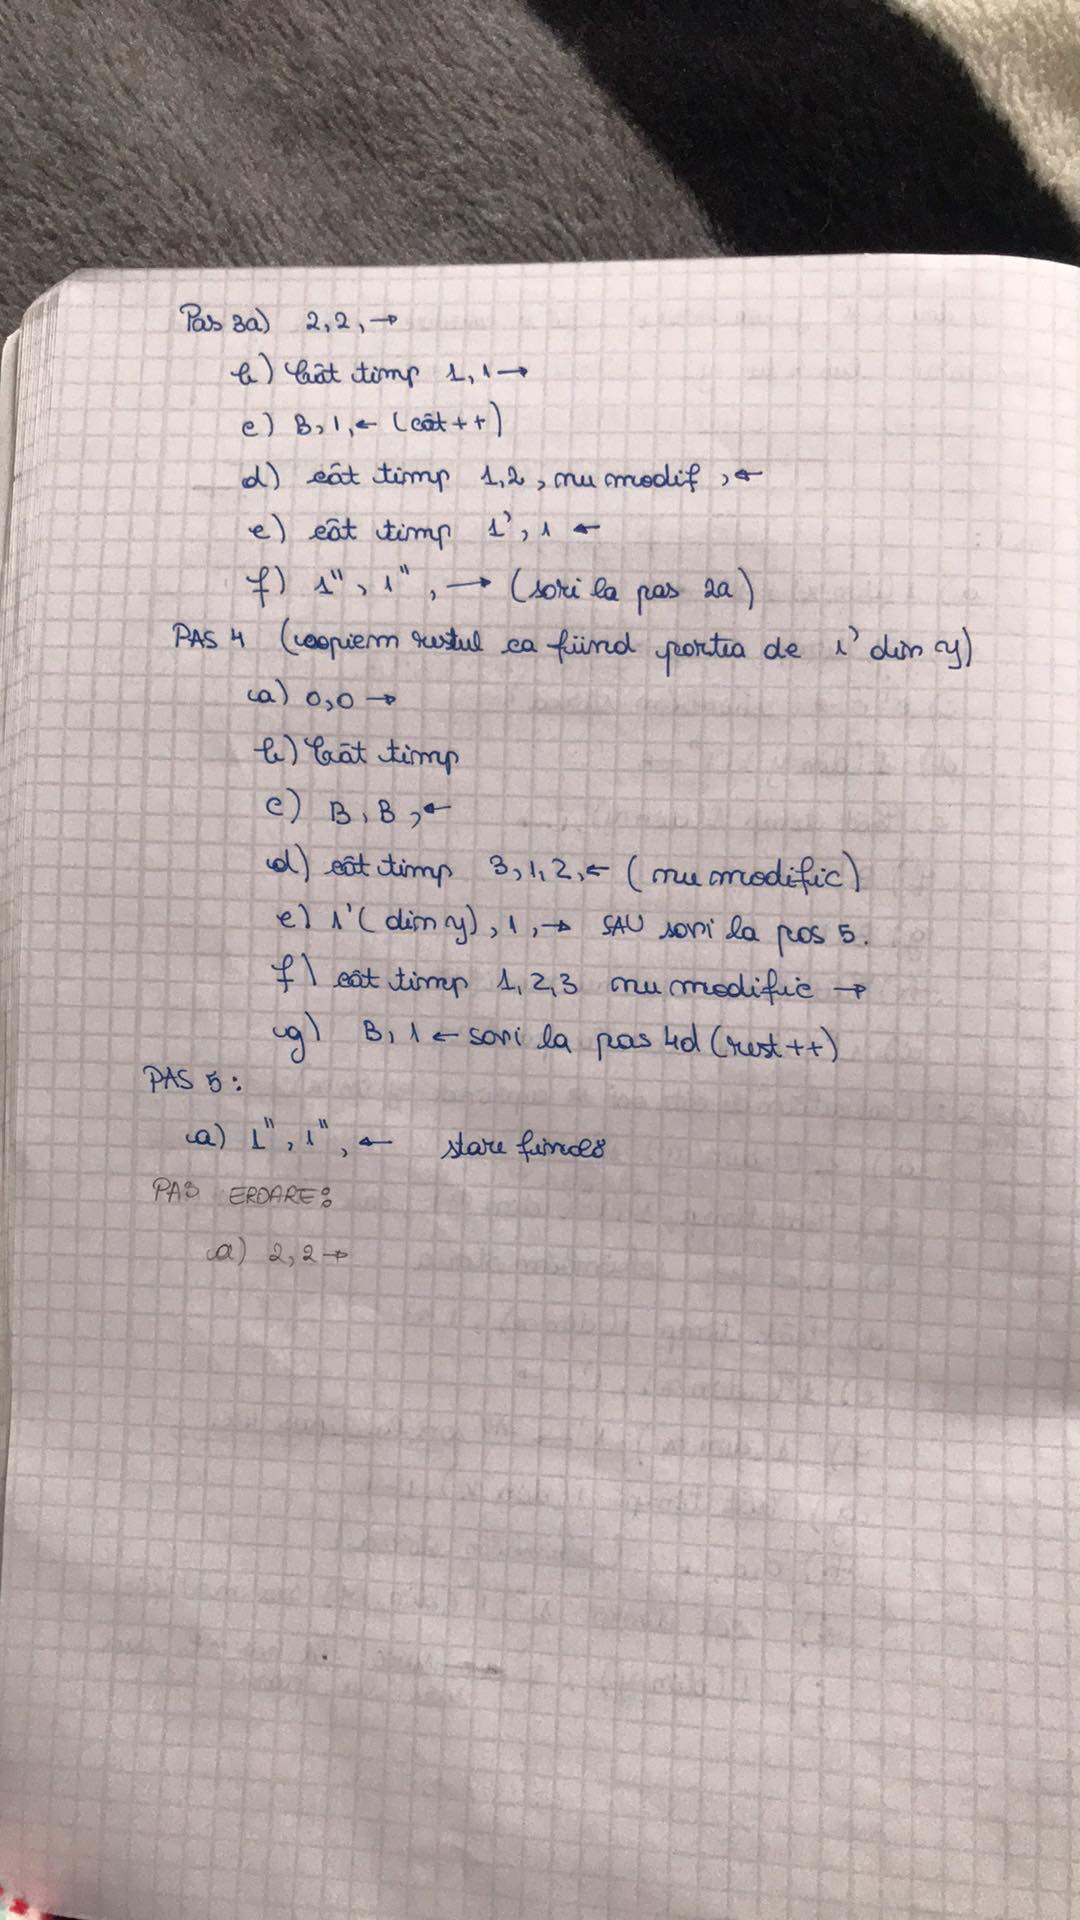 Pas 3a) 2,2,→
b) Cât timp 1,1→
c) B,1,← (cât++)
d) cât timp 1,2, nu modif,←
e) cât timp 1', 1 ←
f) 1", 1", → (sari la pas 2a)
PAS 4 (copiem restul ca fiind portia de 1' din y)
a) 0,0 →
b) Cât timp
c) B, B,←
d) cât timp 3,1,2,← (nu modific)
e) 1' (din y), 1,→ SAU sari la pas 5.
f) cât timp 1,2,3 nu modific →
g) B,1 ← sari la pas 4d (rest++)
PAS 5:
a) 1", 1", ← stare
PAS EROARE:
a) 2,2→